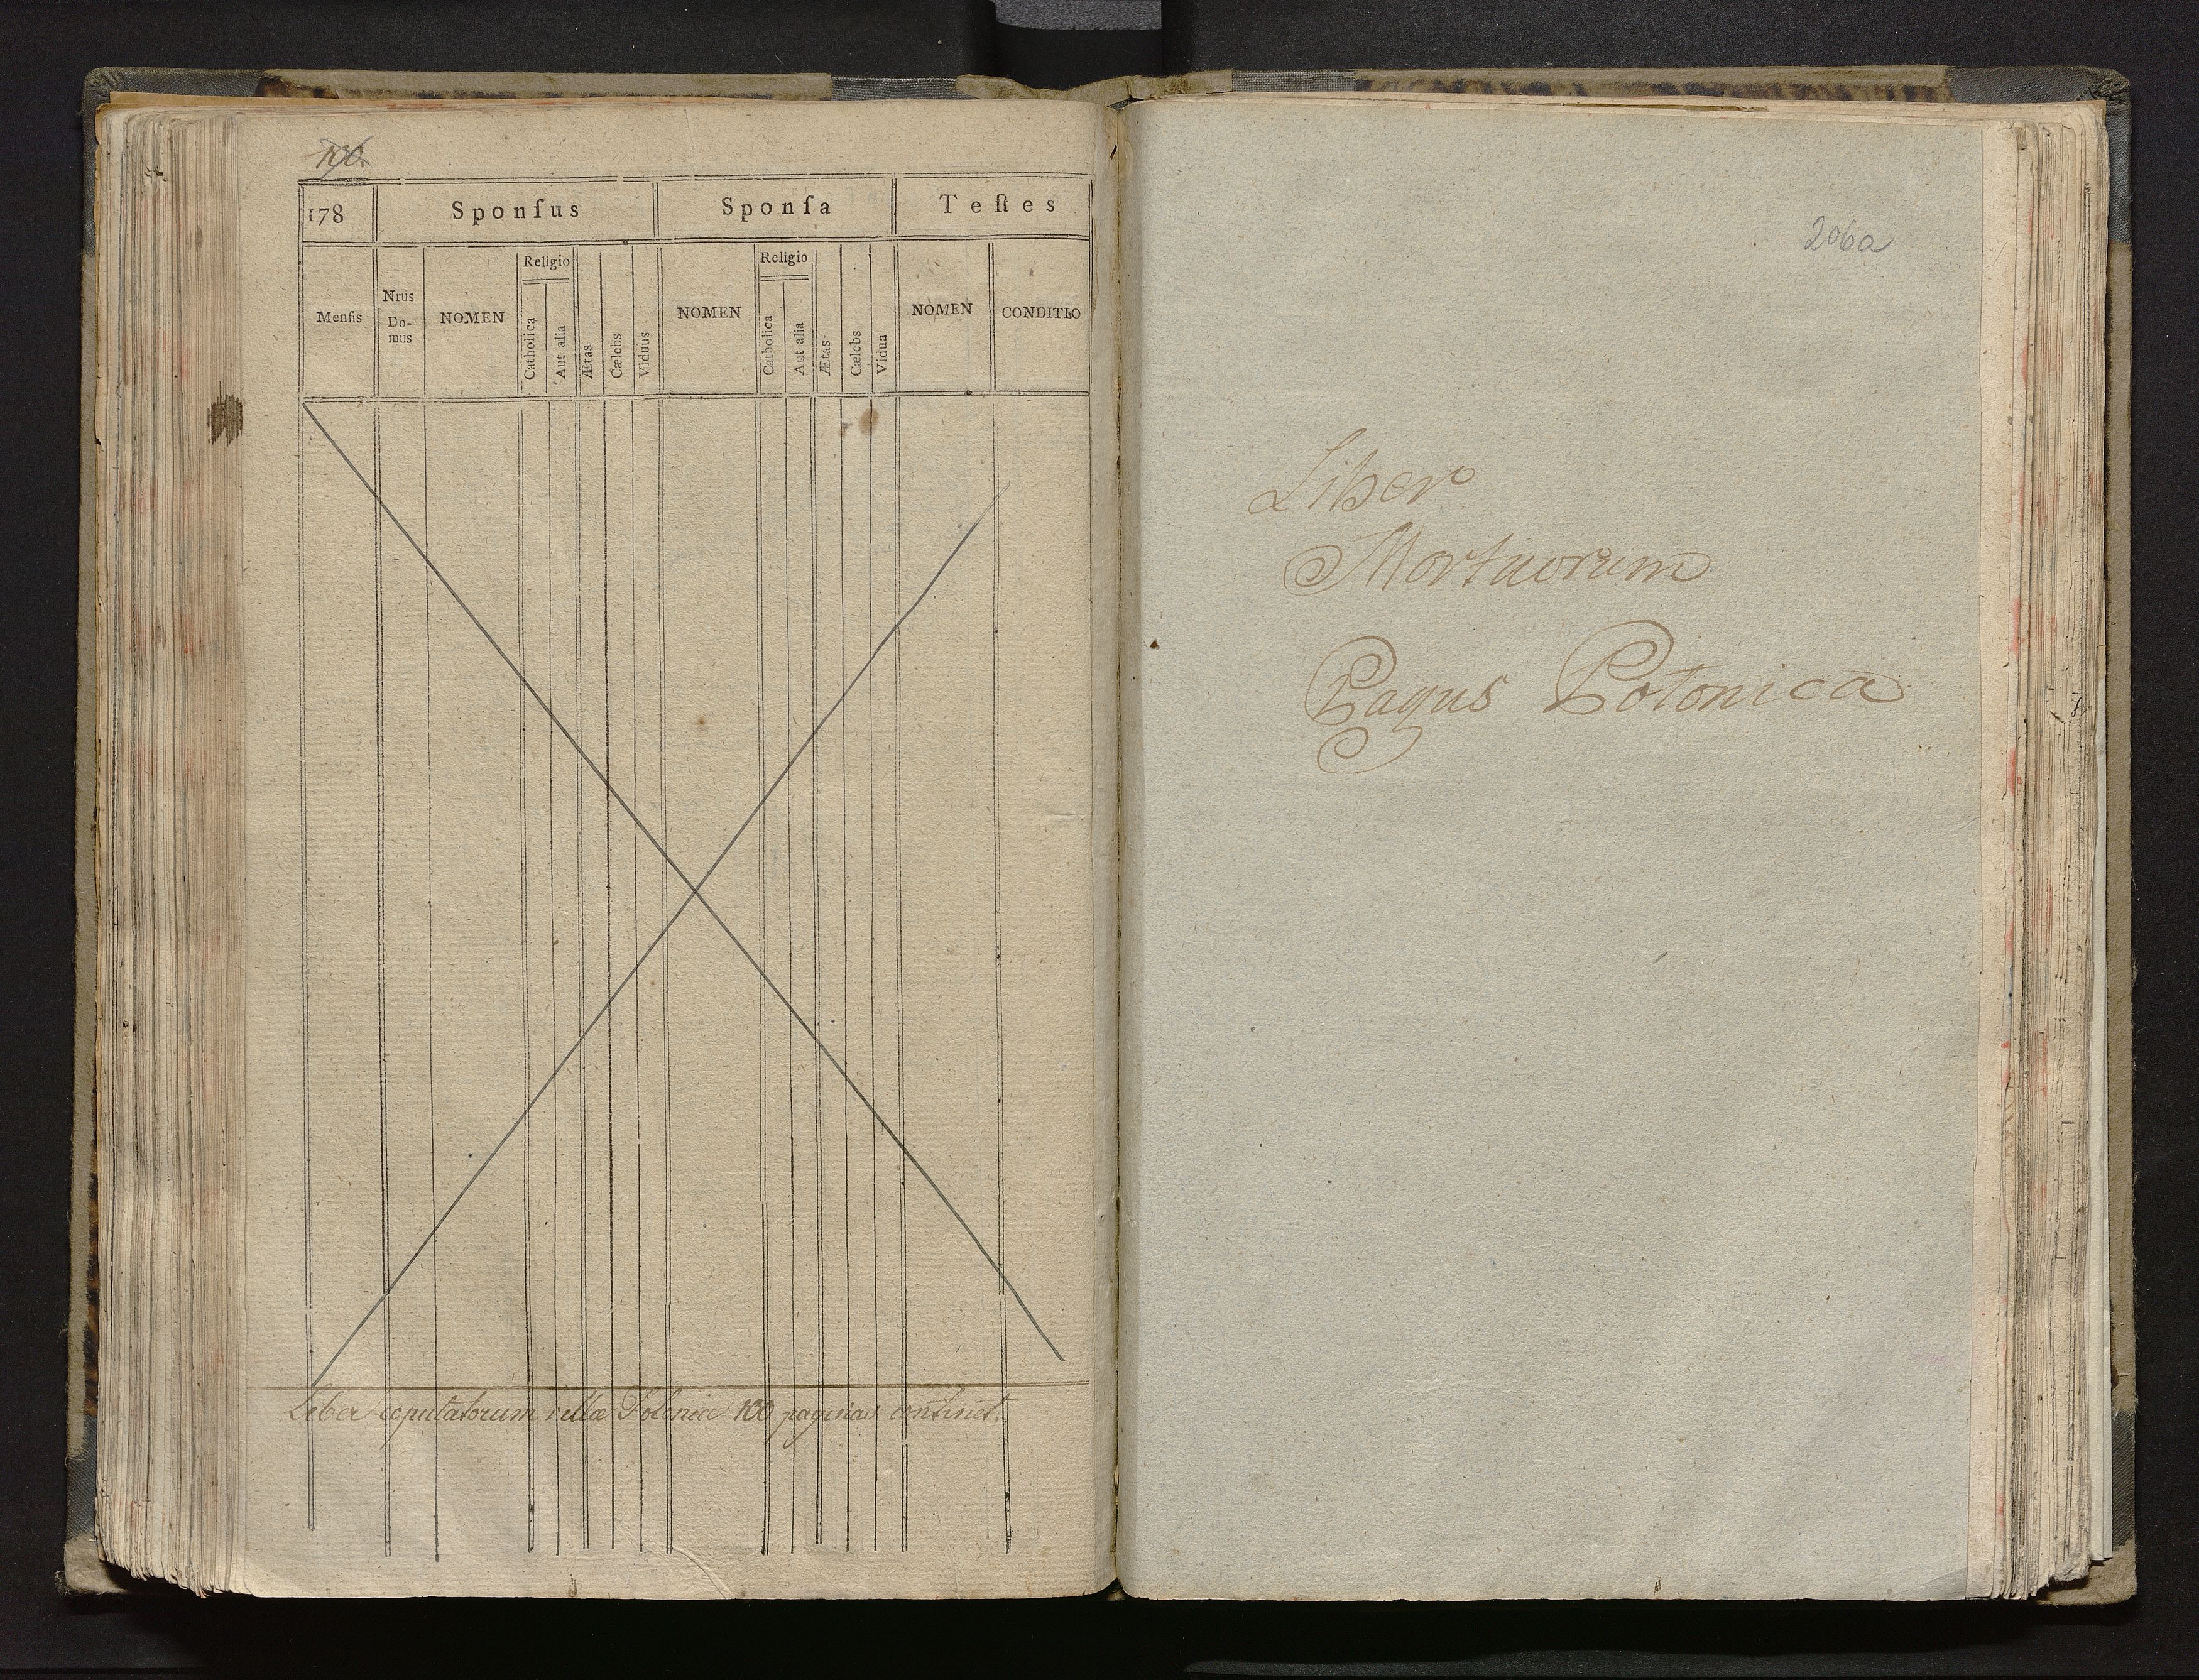 178
Sponſus
Sponſa
Teſtes
Menſis
Nrus
Do-
mus
NOMEN
Religio
Catholica
Aut alia
Ætas
Cælebs
Viduus
NOMEN
Religio
Catholica
Aut alia
Ætas
Cælebs
Vidua
NOMEN
CONDITIO
Liber copulatorum villæ 100 paginas continet.
206a
Liber
Mortuorum
Pagus Potonica